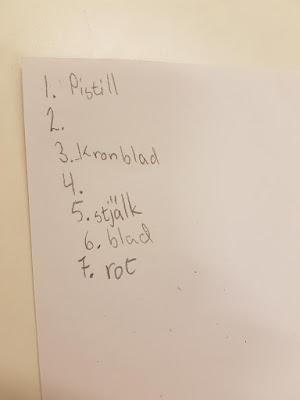 1. Pistill
2.
3. Kronblad
4.
5. stjälk
6. blad
7. rot